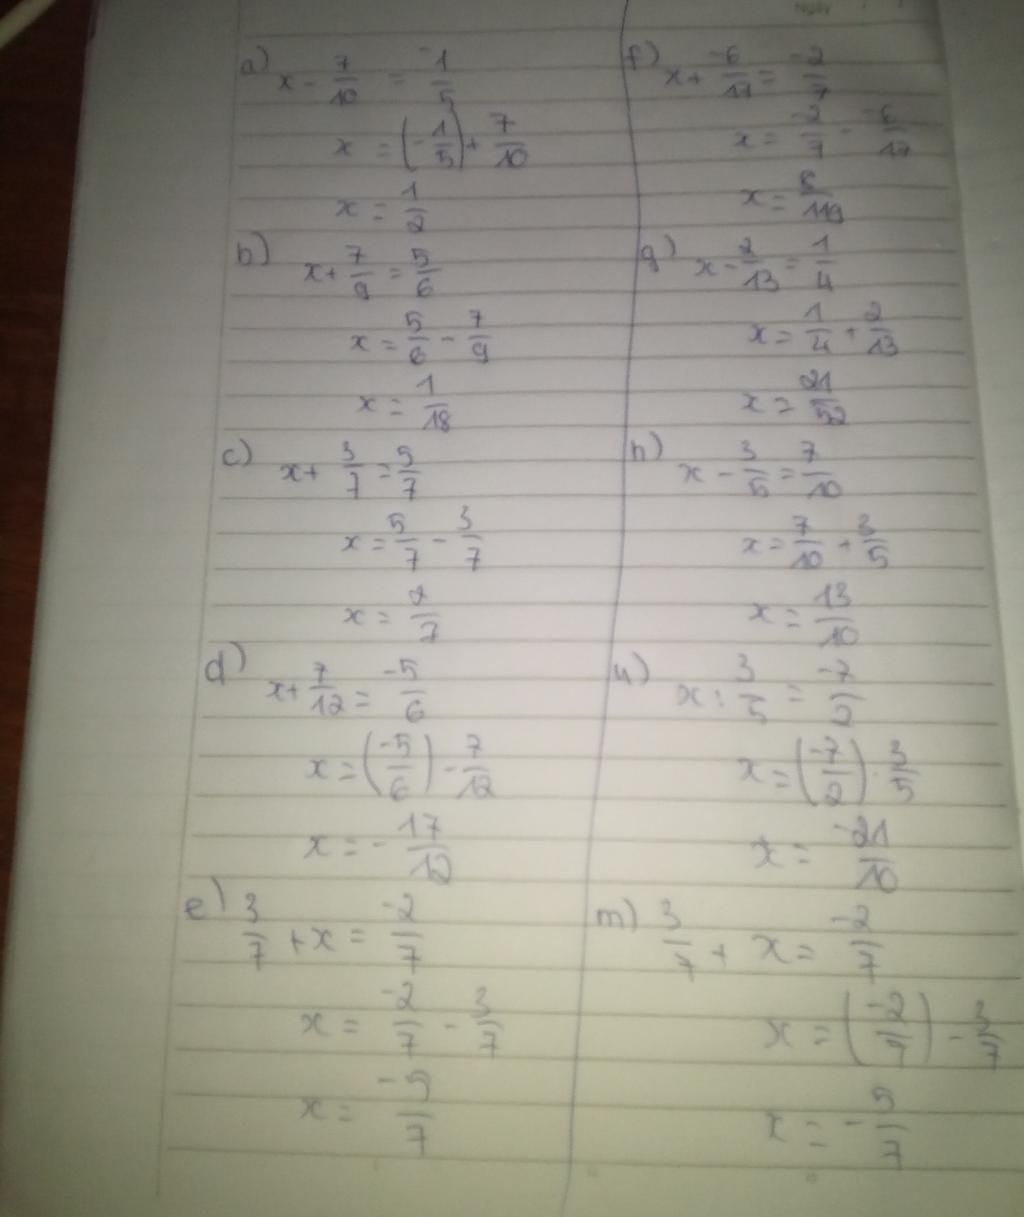 Ngày
a) x - 7/10 = -1/5
x = (-1/5) + 7/10
x = 1/2
b) x + 7/9 = 5/6
x = 5/6 - 7/9
x = 1/18
c) x + 3/7 = 5/7
x = 5/7 - 3/7
x = 2/7
d) x + 7/12 = -5/6
x = (-5/6) - 7/12
x = - 17/12
e) 3/7 + x = -2/7
x = -2/7 - 3/7
x = -5/7
f) x + -6/17 = -2/7
x = -2/7 - -6/17
x = 8/119
g) x - 2/13 = 1/4
x = 1/4 + 2/13
x = 21/52
h) x - 3/5 = 7/10
x = 7/10 + 3/5
x = 13/10
x : 3/5 = -7/2
x = (-7/2) . 3/5
x = -21/10
m) 3/7 + x = -2/7
x = (-2/7) - 3/7
x = - 5/7